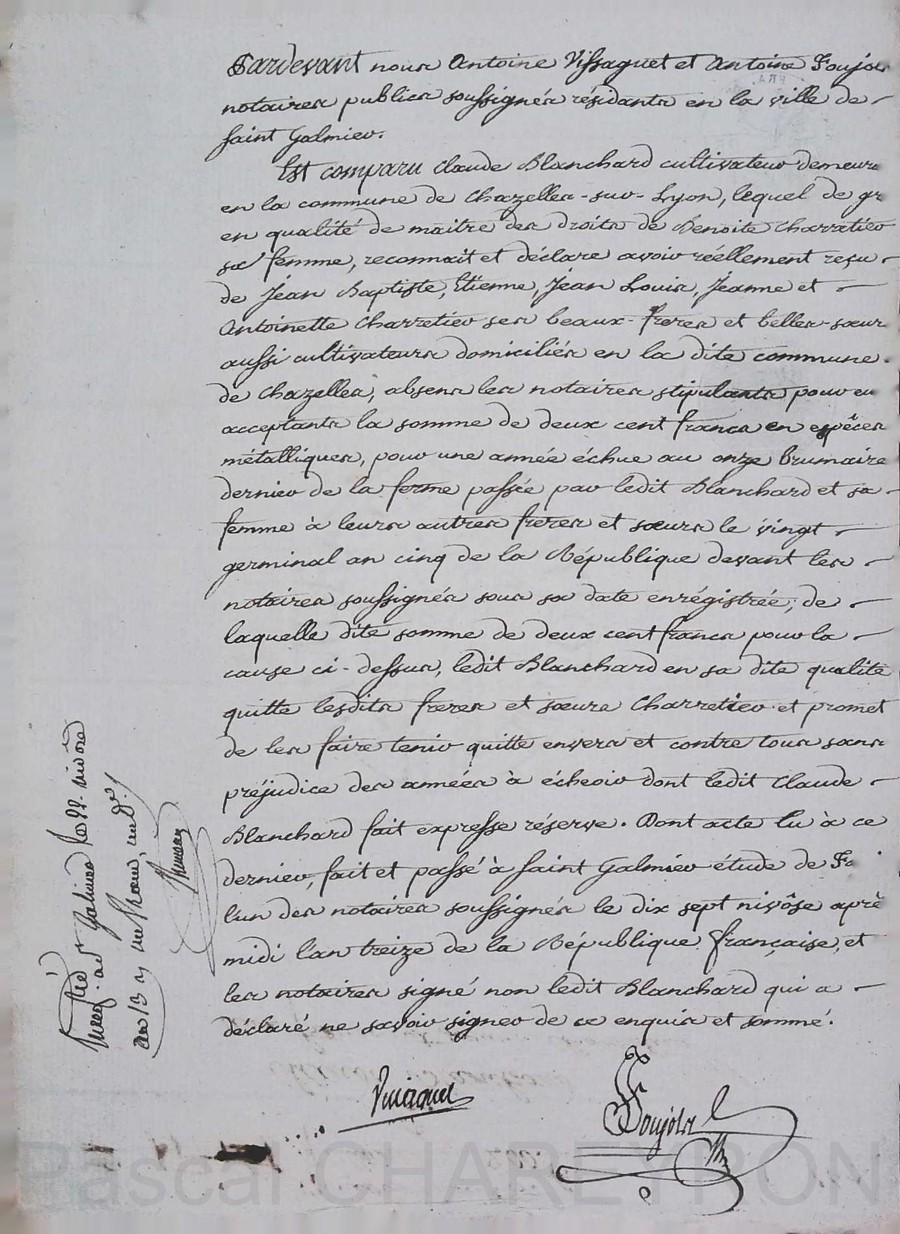 Pardevant nous Antoine Vissaguet et Antoine Foujols
notaires publics soussignés résidants en la ville de
saint Galmier.
Est comparu Claude Blanchard cultivateur demeura
en la commune de Chazelles-sur-Lyon, lequel de gr
en qualité de maitre des droits de Benoite Charretier
sa femme, reconnait et déclare avoir réellement reçu
de Jean Baptiste, Etienne, Jean Louis, Jeanne et
Antoinette Charretier ses beaux-freres et belles-sœurs
aussi cultivateurs domiciliés en la dite commune
de Chazelles, absens les notaires stipulants pour eu
acceptants la somme de deux cent francs en espêces
métalliques, pour une année échue au onze brumaire
dernier de la ferme passée par ledit Blanchard et sa
femme à leurs autres freres et sœurs le vingt
germinal an cinq de la République devant les
notaires soussignés sous sa date enrégistrée; de
laquelle dite somme de deux cent francs pour la
cause ci-dessus, ledit Blanchard en sa dite qualité
quitte lesdits freres et sœurs Charretier et promet
de les faire tenir quitte envers et contre tous sans
préjudice des années à échoir dont ledit Claude
Blanchard fait expresse réserve. Dont acte lu à ce
dernier, fait et passé à saint Galmier étude de Fo
lun des notaires soussignés le dix sept nivôse aprè
midi l'an treize de la République française, et
les notaires signé non ledit Blanchard qui a
déclaré ne savoir signer de ce enquis et sommé.
Vissaguet
Foujols
an 13
Pascal CHAREYRON